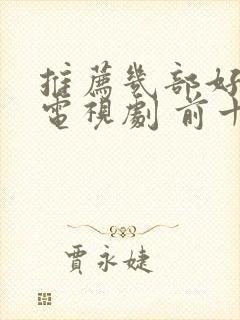 推薦幾部好
電視劇 前十
賈永婕